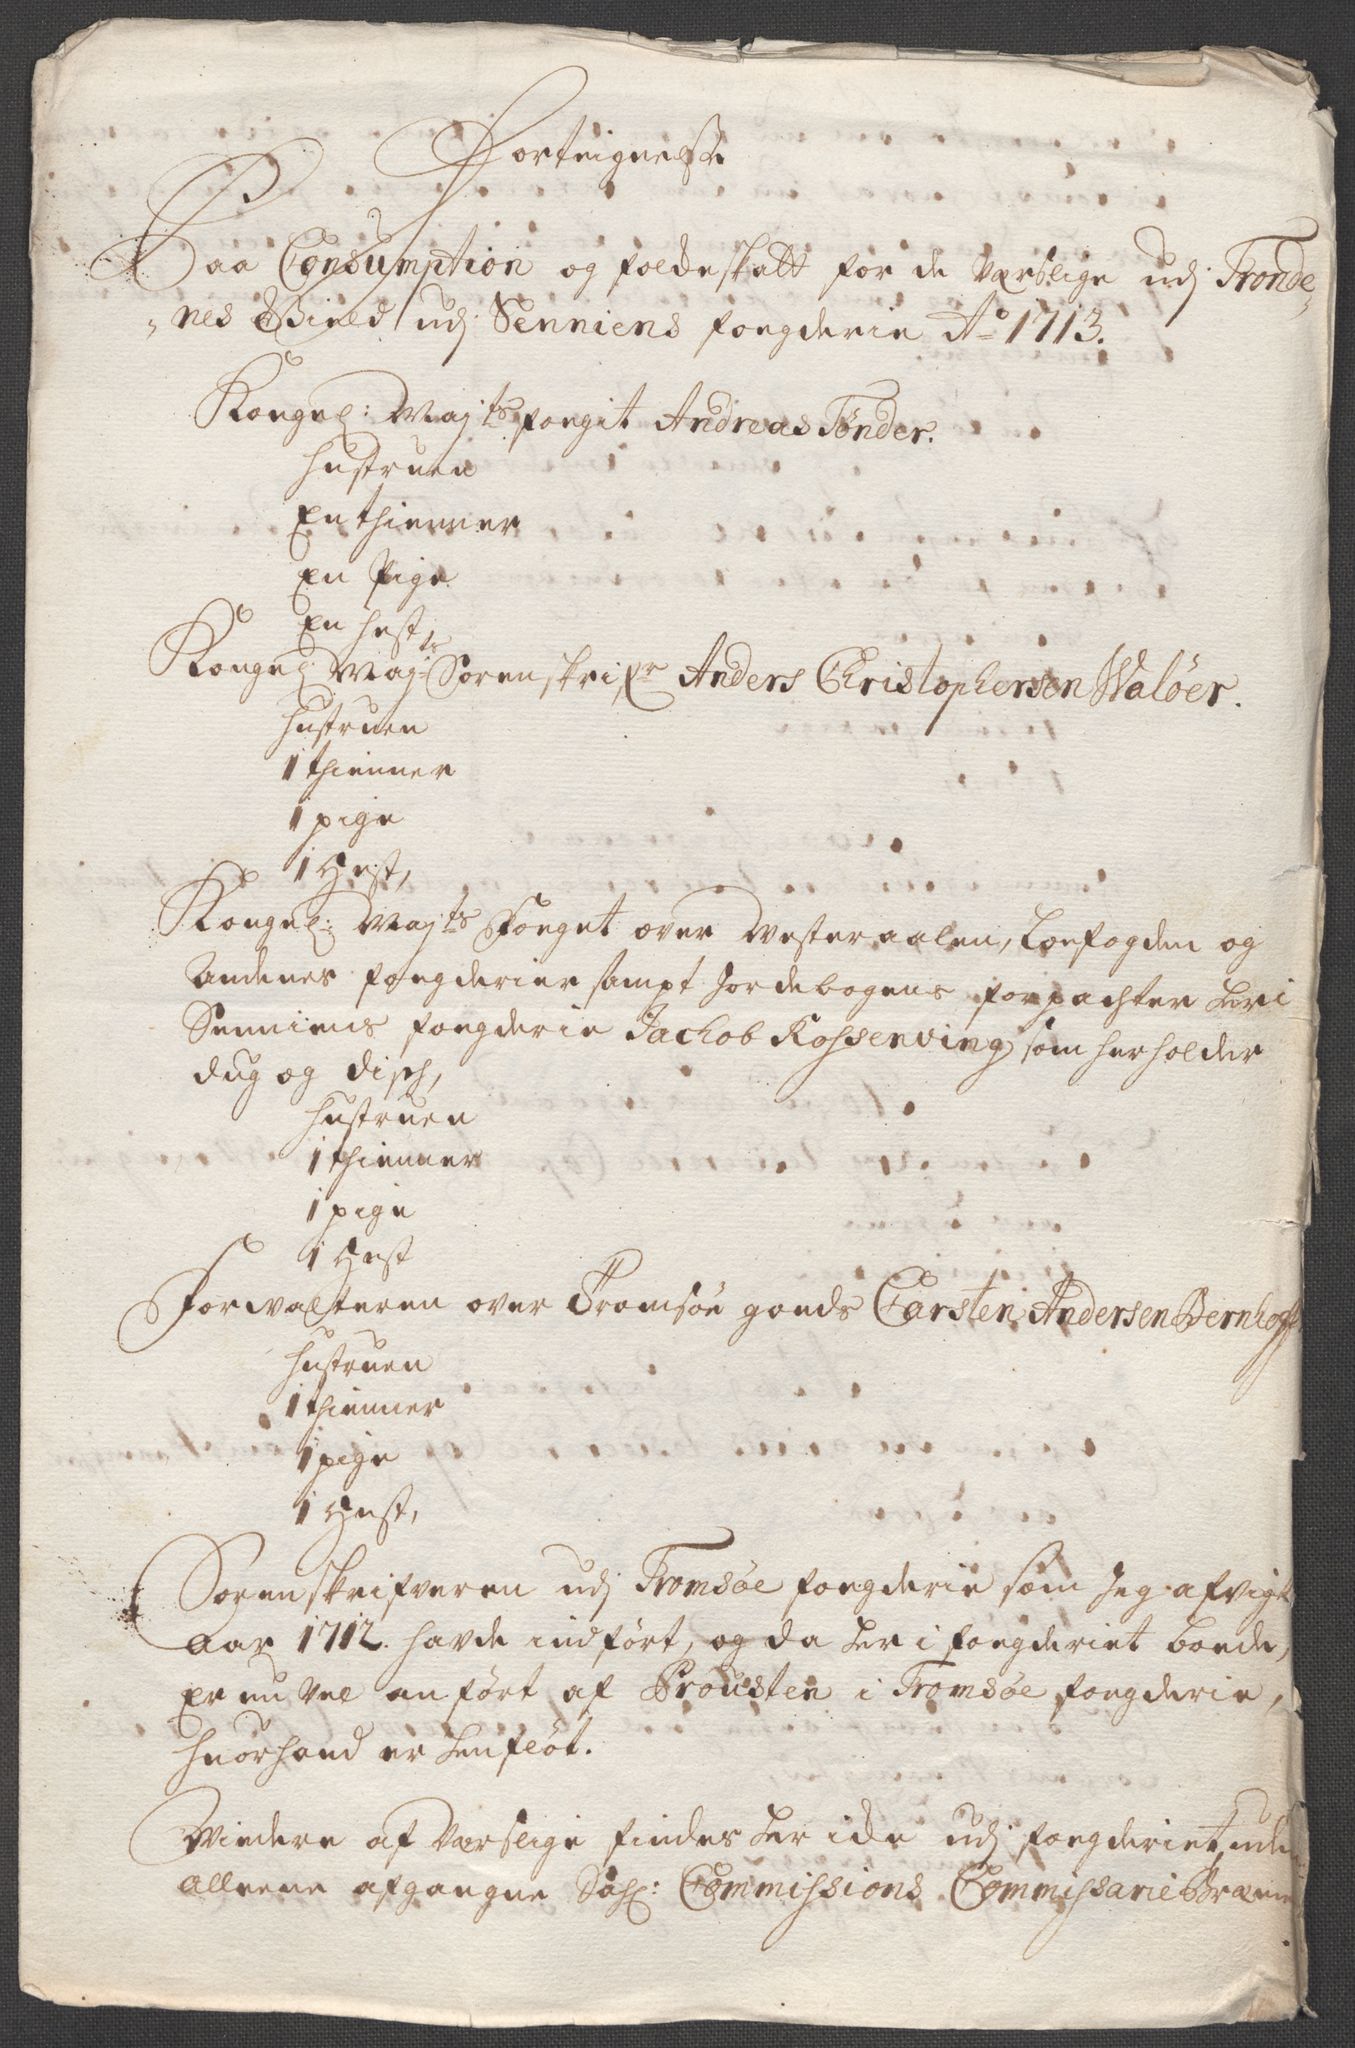 Forteignelse
Paa Consumption og foldeskatt for de Værslige udj Tronde,,
,,nes Gield udj Senniens fougderie Ao 1713.
Kongel: Maj:ts fougit Andreas Tønder.
Hustruen
En thienner
En Pige
En Hest
Kongel: Maj:ts Sorenskrifr Anders Christophersen Waløer.
Hustruen
1 thienner
1 pige
1 Hest,
Kongel: Maj:ts Fouget over Westeraalen, Loefogden og
Andenes fougderier sampt Jordebogens forpachter her i
Senniens fougderie Jachob Rossenving, som her holder
dug og disch,
Hustruen
1 thienner
1 pige
1 Hest
Forwalteren over Tromsøe goeds Carsten Andersen Bernhoff
Hustruen
1 thienner
1 pige
1 Hest,
Sorenskrifveren udj Tromsøe fougderie som Jeg afvigt
aar 1712. hafde indført, og da her i fougderiet boede,
er nu vel anført af Prousten i Tromsøe fougderie,
huorhand er henfløt.
Widere af Værslige findes her icke udj fougderiet, uden
alleene afgangne Sahl: Commissions Commissarie